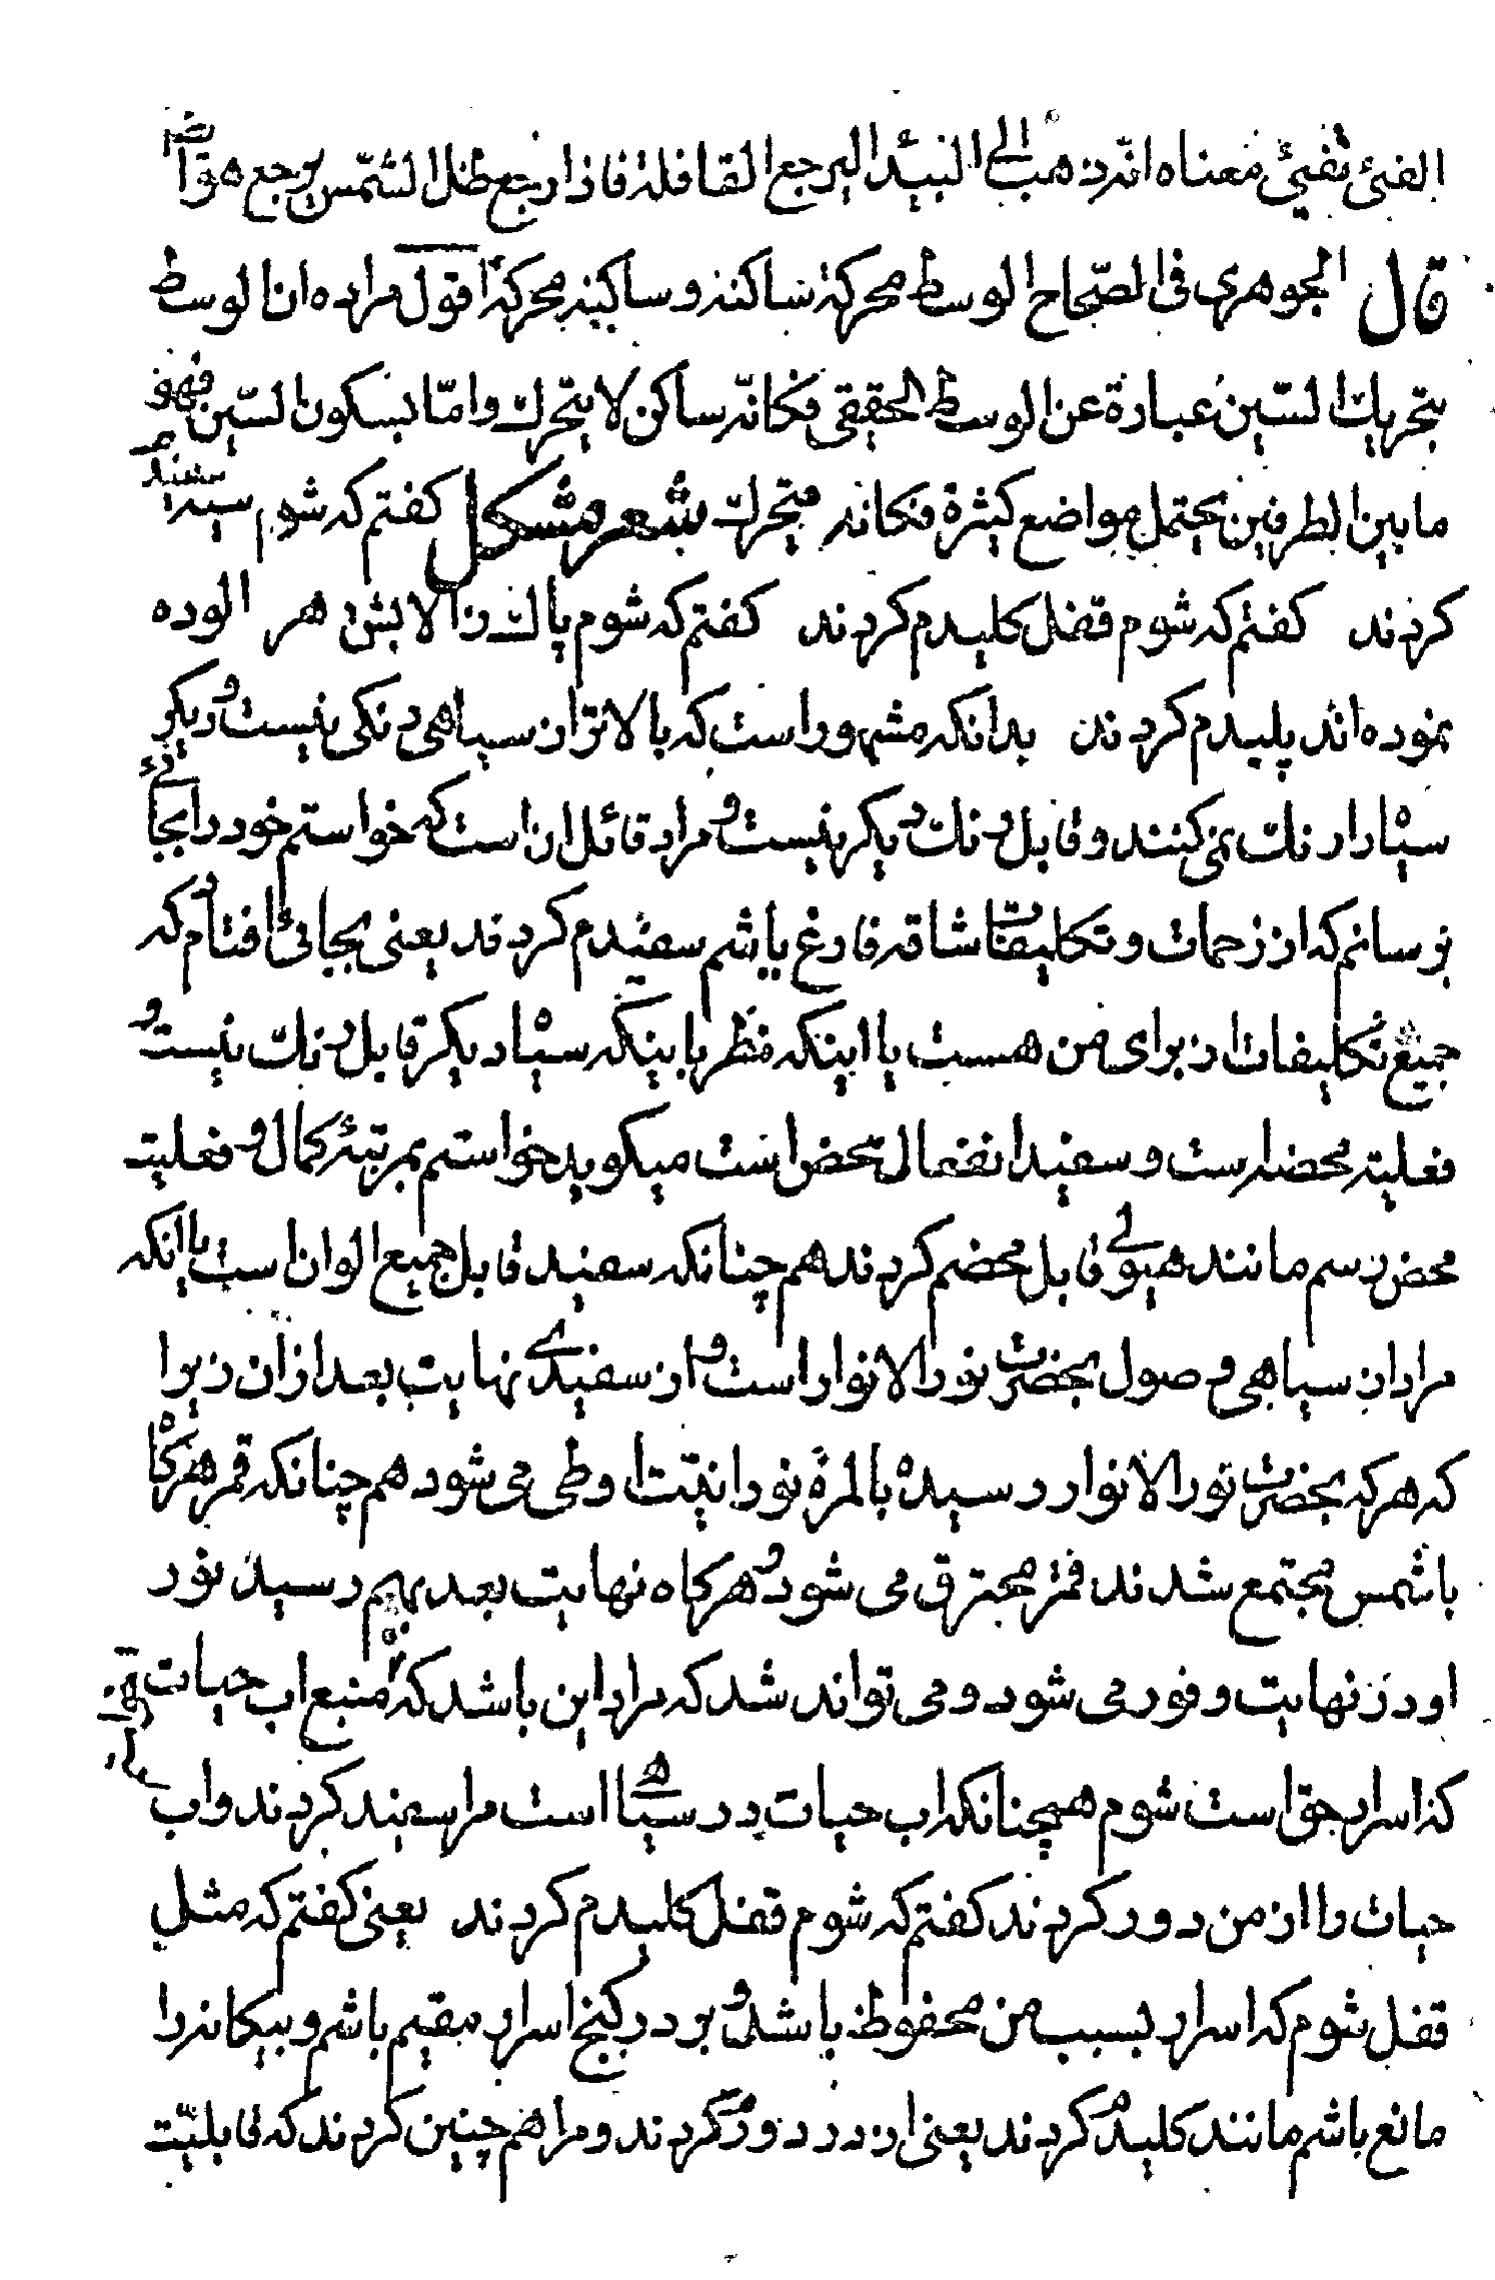 الفئ تفیئ معناه انه ذهب الى البید الیرجع القافلة فاذا رجع ظل الشمس یرجع هو ایضا
قال الجوهری فی الصّحاح الوسط محرکة ساکنه وساکنه محرکة اقول مراده ان الوسط
بتحریک السّین عبارة عن الوسط الحقیقی فکانّه ساکن لا یتحرک وامّا بسکون السّین فهو
ما بین الطرفین یحتمل مواضع کثیرة فکانه متحرک شعر مشکل کفتم که شوم سیه سفیدم
کردند کفتم که شوم قفل کلیدم کردند کفتم که شوم پاک ز الایش هر الوده
نموده اند پلیدم کردند بدانکه مشهور است که بالاتر از سیاهی رنکی نیست و دیکر
سیاه را رنک نمی کنند و قابل رنک دیکر نیست و مراد قائل ان است که خواستم خود را بجائی
برسانم که از زحمات و تکلیفات شاقه فارغ باشم سفیدم کردند یعنی بجائی افتادم که
جمیع تکلیفات از برای من هست یا اینکه نظر باینکه سیاه دیکر قابل رنک نیست و
فعلیة محضه است و سفید انفعال محض است میکوید خواستم بمرتبهٔ کمال و فعلیت
محض رسم مانند هیولی قابل محضم کردند هم چنانکه سفید قابل جمیع الوان است یا انکه
مراد از سیاهی وصول بحضرت نور الانوار است و از سفیدی نهایت بعد از ان زیرا
که هر که بحضرت نور الانوار رسیده بالمرة نورانیت او طی می شود هم چنانکه قمر هرکاه
با شمس مجتمع شدند قمر محترق می شود و هرکاه نهایت بعد بهم رسید نور
او در نهایت وفور می شود و می تواند شد که مراد این باشد که منبع اب حیات
که اسرار حق است شوم همچنانکه اب حیات در سیاهی است مرا سفید کردند و اب
حیات را از من دور کردند کفتم که شوم قفل کلیدم کردند یعنی کفتم که مثل
قفل شوم که اسرار بسبب من محفوظ باشد و بر در کنج اسرار مقیم باشم و بیکانه را
مانع باشم مانند کلیدم کردند یعنی از در دورم کردند و مرا هم چنین کردند که قابلیّت